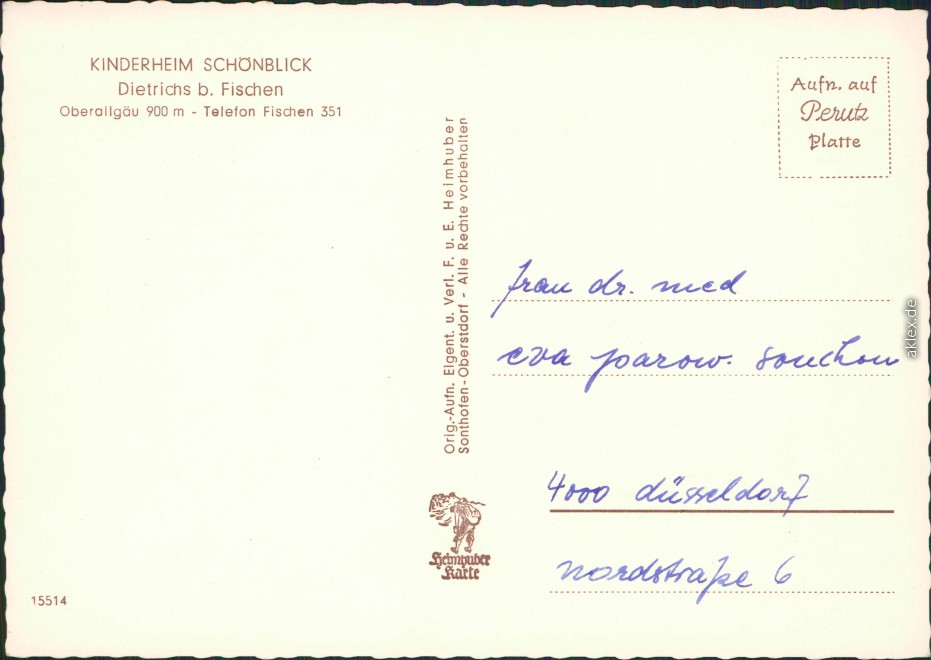 KINDERHEIM SCHÖNBLICK
Dietrichs b. Fischen
Oberallgäu 900 m - Telefon Fischen 351
Aufn. auf
Perutz
Platte
Orig.-Aufn. Eigent. u. Verl. F. u. E. Heimhuber
Sonthofen-Oberstdorf - Alle Rechte vorbehalten
frau dr. med
eva parow-souchon
4000 düsseldorf
nordstraße 6
Heimhuber
Karte
15514
aklex.de